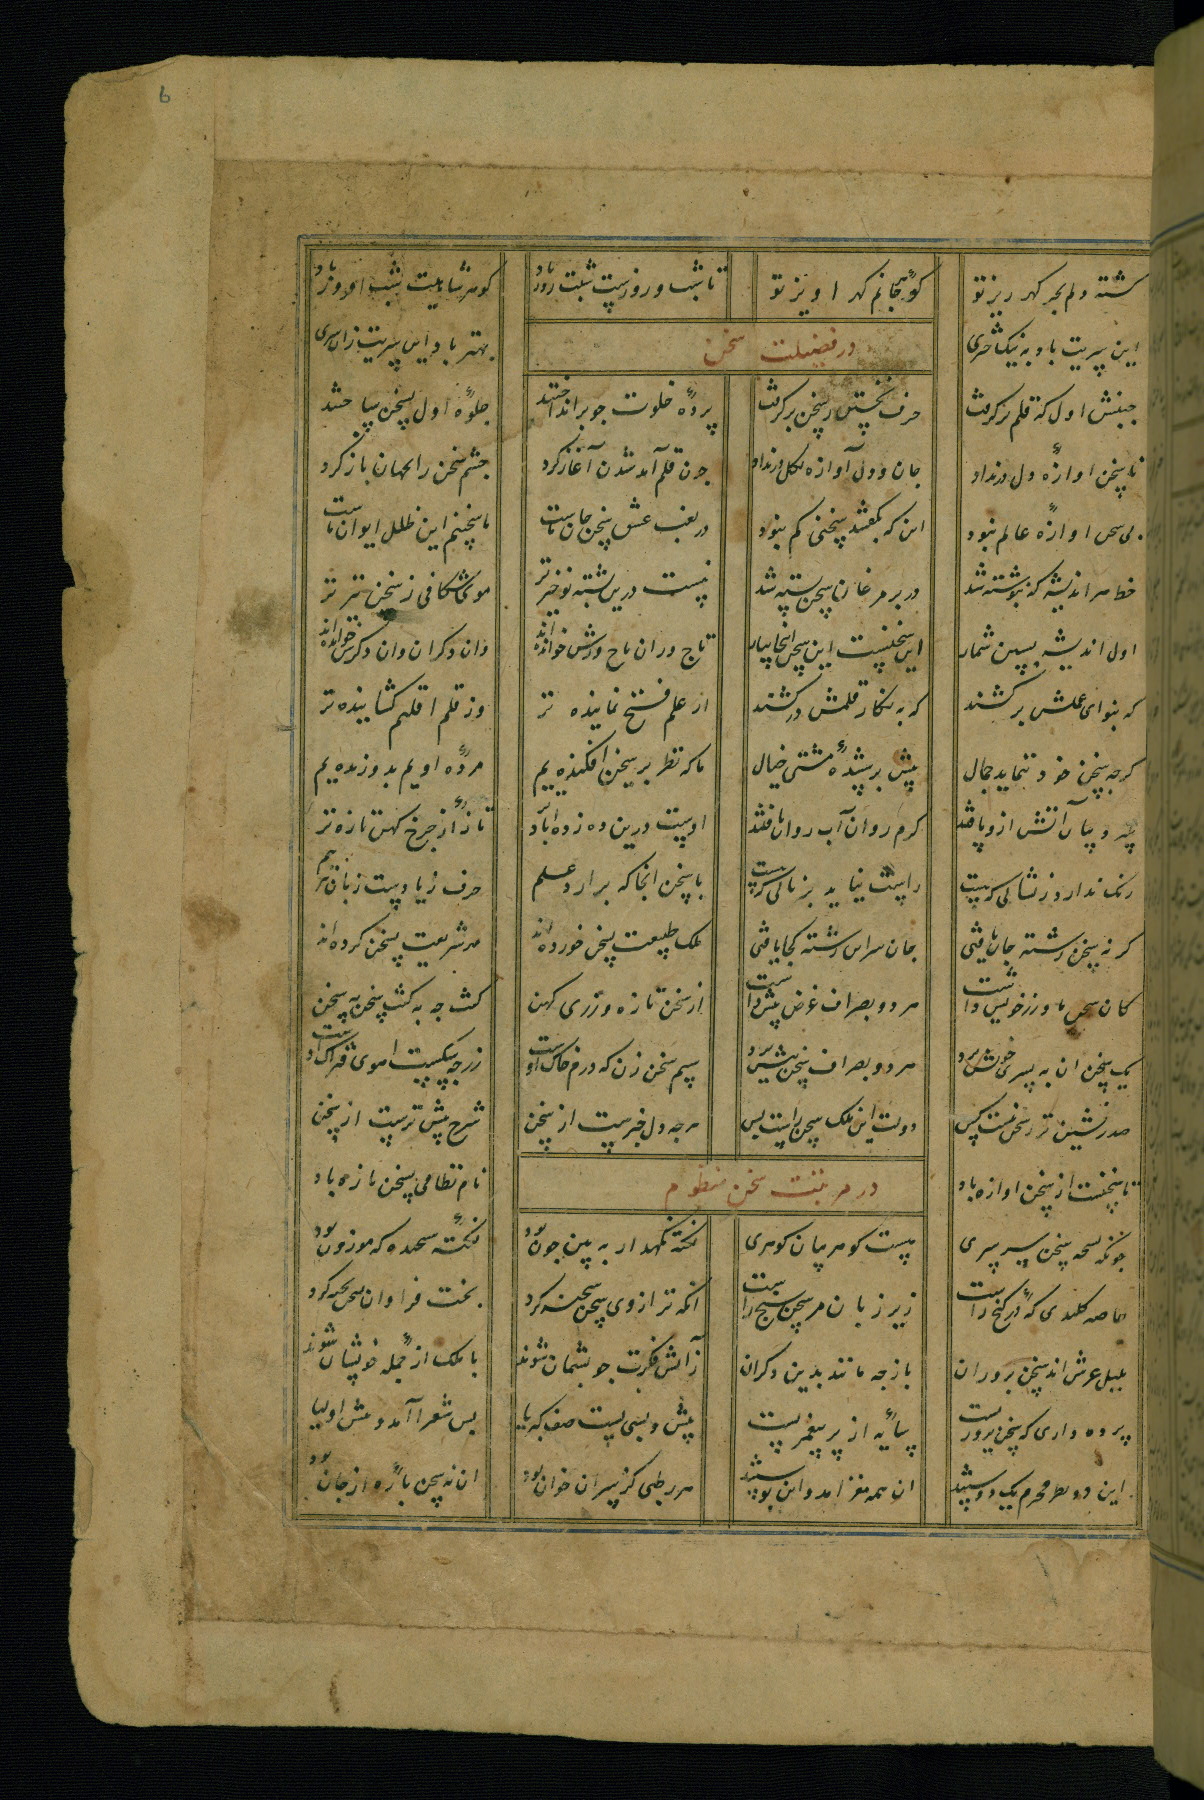 کشته دلم بحر کهر ریز تو کوهر جانم کهر اویز تو تا شب و روزست شبت روز باد کوهر شاهیت شب افروز باد
این سریت باد به نیک اختری بهتر باد این سریت زان سری
در فضیلت سخن
جنبش اول که قلم برکرفت حرف نخستین ز سخن برکرفت پردهٔ خلوت جو برانداختند جلوهٔ اول بسخن ساختند
تا سخن اوازهٔ دل در نداد جان و دل آوازه بکل در نداد جون قلم آمد شدن آغاز کرد جشم سخن را بجهان باز کرد
بی سخن اوازهٔ عالم نبود این که بکفتند سخنی کم نبود در لغت عشق سخن جان ماست ما سخنیم این طلل ایوان ماست
خط هر اندیشه که بنوشته شد در پر مرغان سخن بسته شد نیست درین شبته نوخیزتر موی شکافی ز سخن تیزتر
اول اندیشه پسین شمار این سخنست این سخن اینجا بیار تاج وران تاج ورش خوانده اند وان دکران وان دکرش خوانده اند
که بنوای علمش برکشند که به نکار قلمش درکشند از علم فتح نماینده تر وز قلم اقلیم کشاینده تر
کرجه سخن خود ننماید جمال پیش پرستندهٔ مشتی خیال ما که نظر بر سخن افکنده یم مردهٔ اویم بدو زنده یم
سرد پیان آتش ازو یافتند کرم روان آب روان یافتند اوست درین ده زده آبادتر تازهٔ از جرخ کهن تازه تر
رنک ندارد ز نشانی که هست راست نیاید بزبانی که هست با سخن انجا که برارد علم حرف زیادست زبان نیز هم
کر نه سخن رشته جان تافتی جان سر این رشته کجا یافتی ملک طبیعت بسخن خورده اند مهر شریعت بسخن کرده اند
کان سخن ما و زر خویش داشت هر دو بصراف غرض پیش داشت از سخن تازه و زر کهن کفت جه به کفت سخن به سخن
یک سخن ان به پسری خویش برد هر دو بصراف سخن پیش برد سیم سخن زن که درم خاک اوست زر جه سکست اهوی فتراک اوست
صدر نشین تر ز سخن نیست کس دولت این ملک سخن راست بس هرجه دل خبرست از سخن شرح بیشترست از سخن
تا سخنست از سخن اوازه باد نام نظامی بسخن تازه باد
در مرتبت سخن منظوم
جونکه نسخه سخن سرسری هست کوهر میان کوهری نکته نکهدار به بین جون بود نکتهٔ سنجیده که موزون بود
خاصه کلیدی که در کنج راست زیر زبان مر سخن سنج راست انکه ترازوی سخن سخته کرد بخت فراوان سخن بخته کرد
بلبل عرش اند سخن پروران باز جه مانند بدین دکران زآتش فکرت جو پشیمان شوند با ملک از جملهٔ خویشان شوند
پرده داری که سخن پرورست سایهٔ از پر پیغمبرست پیش و پسی بست صف کبریا پس شعرا آمد و پیش اولیا
این دو نظر محرم یک دوستند ان همه مغز امد و این پوستند هر رطبی کز سر ان خوان بود ان نه سخن پارهٔ از جان بود